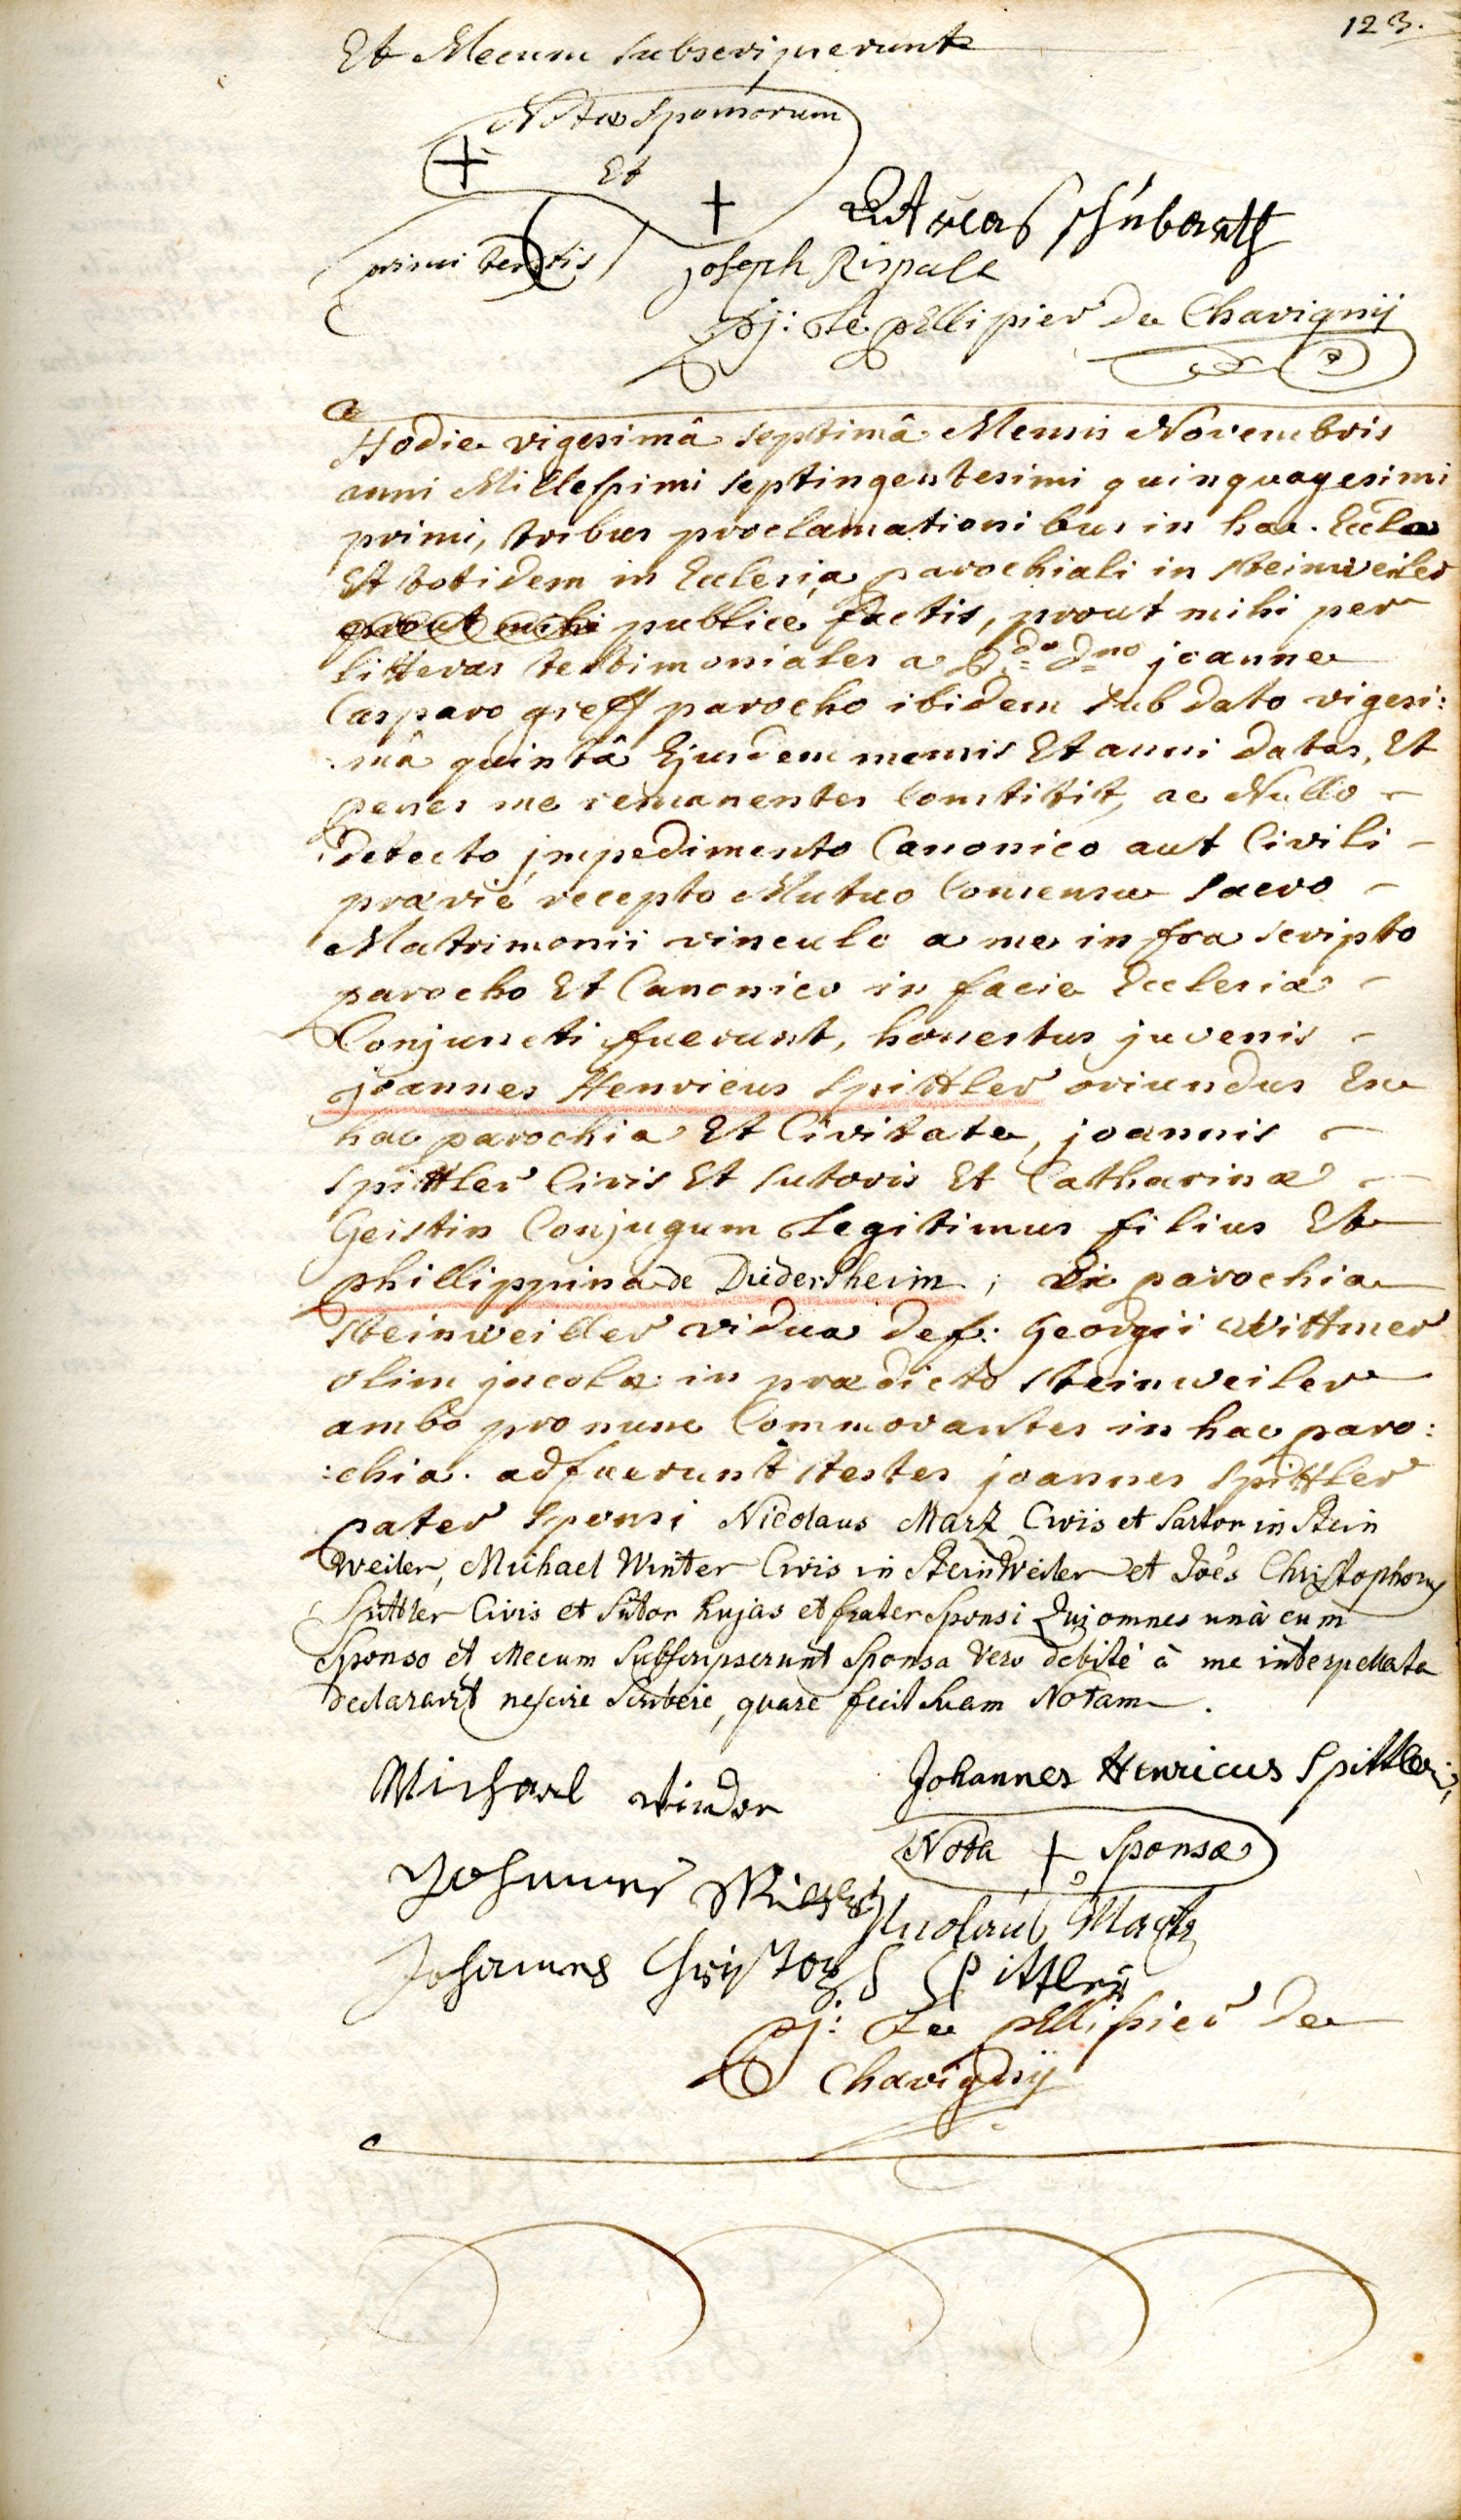 123.
Et Mecum subscripserunt
Notæ Sponsorum
Et
primi testis
Andreas Schubarth
joseph Rispale
j: Le pellissier De Chavignÿ
Hodie vigesimâ septimâ Mensis Novembris
anni Millessimi septingentesimi quinquagesimi
primi, tribus proclamationibus in hac Eccla
Et totidem in Eclesia parochiali in steinweiler
prout mihi publicè factis, prout mihi per
litteras testimoniales a Rdo Dno joanne
Casparo greff parocho ibidem sub dato vigesi:
mâ quintâ Ejusdem mensis Et anni datas, Et
penes me remanentes Constitit, ac Nullo
detecto jmpedimento Canonico aut Civili
prævie recepto Mutuo Consensu sacro
Matrimonii vinculo a me infra scripto
parocho Et Canonico in facie Ecclesiæ
Conjuncti fuerunt, honestus juvenis
joannes Henricus Spittler oriundus Ex
hac parochia Et Civitate, joannis
Spittler Civis Et sutoris Et Catharinæ
Geistin Conjugum Legitimus filius Et
phillippina de Diedersheim, Ex parochia
steinweiller vidua def: Georgii Wittmer
olim jncolæ in prædicto steinweiler
ambo pro nunc Commorantes in hac paro:
:chia. adfuerunt testes joannes Spittler
pater sponsi Nicolaus Marz Civis et Sartor in Stein
weiler, Michael Winter Civis in Steinweiler et Joês Christophorus
Spittler Civis et Sutor hujas et frater Sponsi Qui omnes unà cum
Sponso et Mecum Subscripserunt Sponsa vero debitè à me interpellata
declaravit nescire scribere, quare fecit suam Notam.
Michael winder
Johannes Henricus Spittler
Nota + Sponsæ
Johannes
Nicolaus Martz
Johannes Christoph Spittler
j: Le pellissier De
Chavignÿ